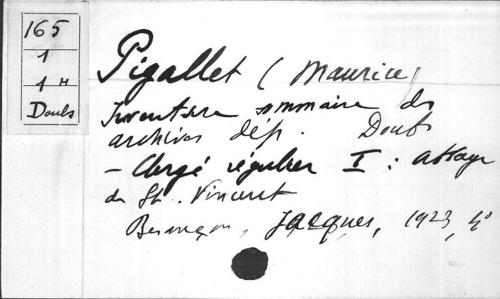 165
1
1 H
Doubs
Pigallet (Maurice)
Inventaire sommaire des
archives dép. Doubs
- Clergé régulier I : abbaye
de St. Vincent
Besançon, Jacques, 1923, 4°